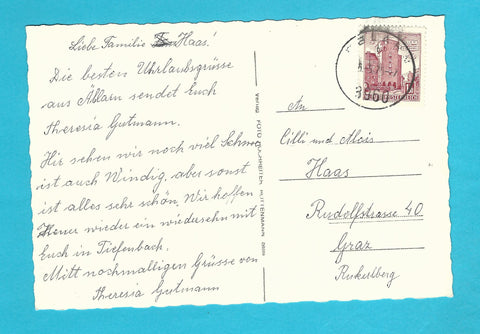 Liebe Familie Haas!
Die besten Uhrlaubsgrüsse
aus sendet Euch
Theresia Gutmann.
Hir sehen wir noch viel Schnee
ist auch Windig, aber sonst
ist alles sehr schön. Wir hoffen
Heuer wieder ein wiedersehn mit
Euch in Tiefenbach.
Mitt nochmalligen Grüsse von
Theresia Gutmann
Verlag FOTO
An
Cilli und Alois
Haas
Rudolfstrasse 40
Graz
Ruckerlberg